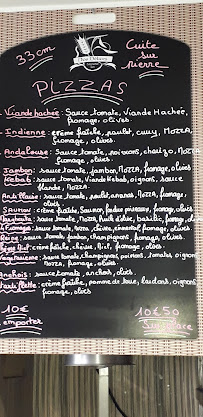 33cm
Cuite
sur
pierre
PIZZAS
Viande hachée: Sauce tomate, Viande Hachée,
fromage, olives
Indienne: crème fraîche, poulet, curry, MOZZA,
fromage, olives.
Andalouse: Sauce tomate, poivrons, chorizo, MOZZA
fromage, olives.
Jambon: sauce tomate, jambon, MOZZA, fromage, olives.
Kebab: Sauce tomate, Viande Kebab, oignons, sauce
blande, MOZZA
Antillaise: sauce tomate, poulet, ananas, MOZZA, fromage,
olives.
Saumon: crème fraîche, Saumon, fromage, olives.
sauce tomate, MOZZA, huile d'olive, basilic, olives.
4 Fromages: sauce tomate, chèvre, fromage, olives.
Reine: sauce tomate, jambon, champignons, fromage, olives.
crème fraîche, chèvre, Miel, fromage, olives.
Végétarienne: sauce tomate, champignons, poivrons, tomates, oignons
MOZZA, fromage, olives.
Anchois: sauce tomate, anchois, olives.
Tartiflette: crème fraîche, pomme de terre, lardons, oignons
fromage, olives
10€
emporter
10€50
Sur place